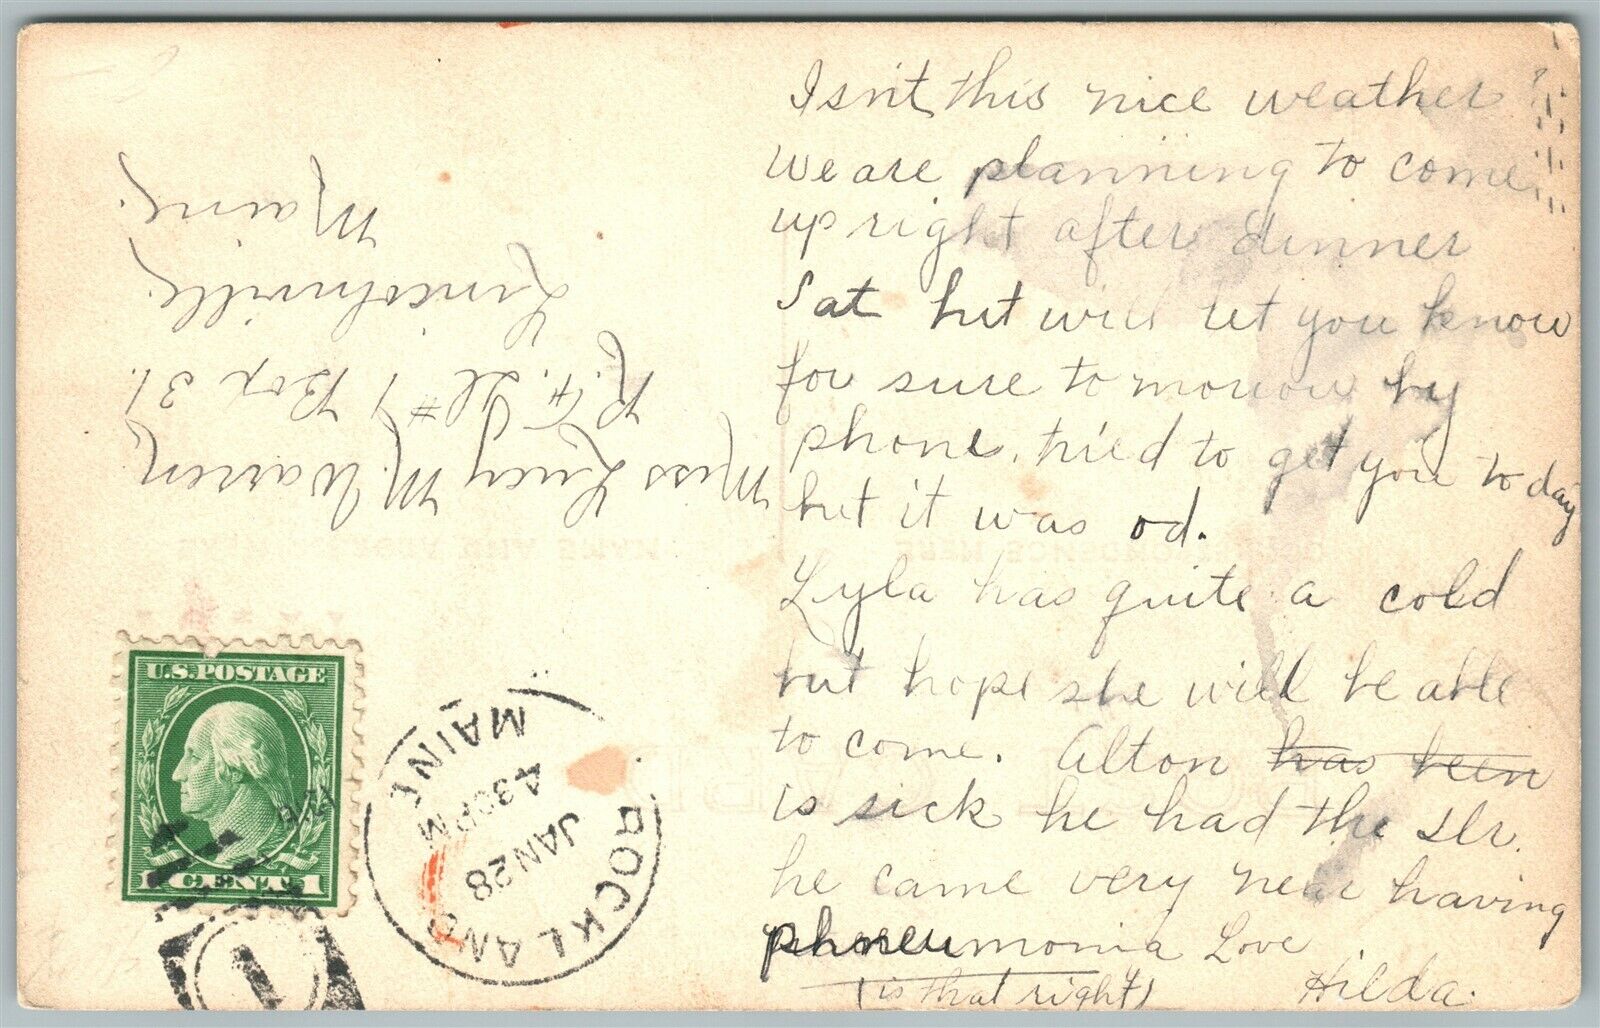 Isn't this nice weather?
We are planning to come
up right after dinner
Sat but will let you know
for sure to morrow by
phone, tried to get you to day
but it was od.
Lyla has quite a cold
but hope she will be able
to come. Alton has been
is sick he had the Dr.
he came very near having
phoneumonia Love
(is that right) Hilda.
Miss Lucy M. Warren,
R.F.D. #1 Box 31.
Lincolnville,
Maine.
U.S. POSTAGE
1 CENT 1
ROCKLAND
MAINE
JAN 28
4 30 PM
1